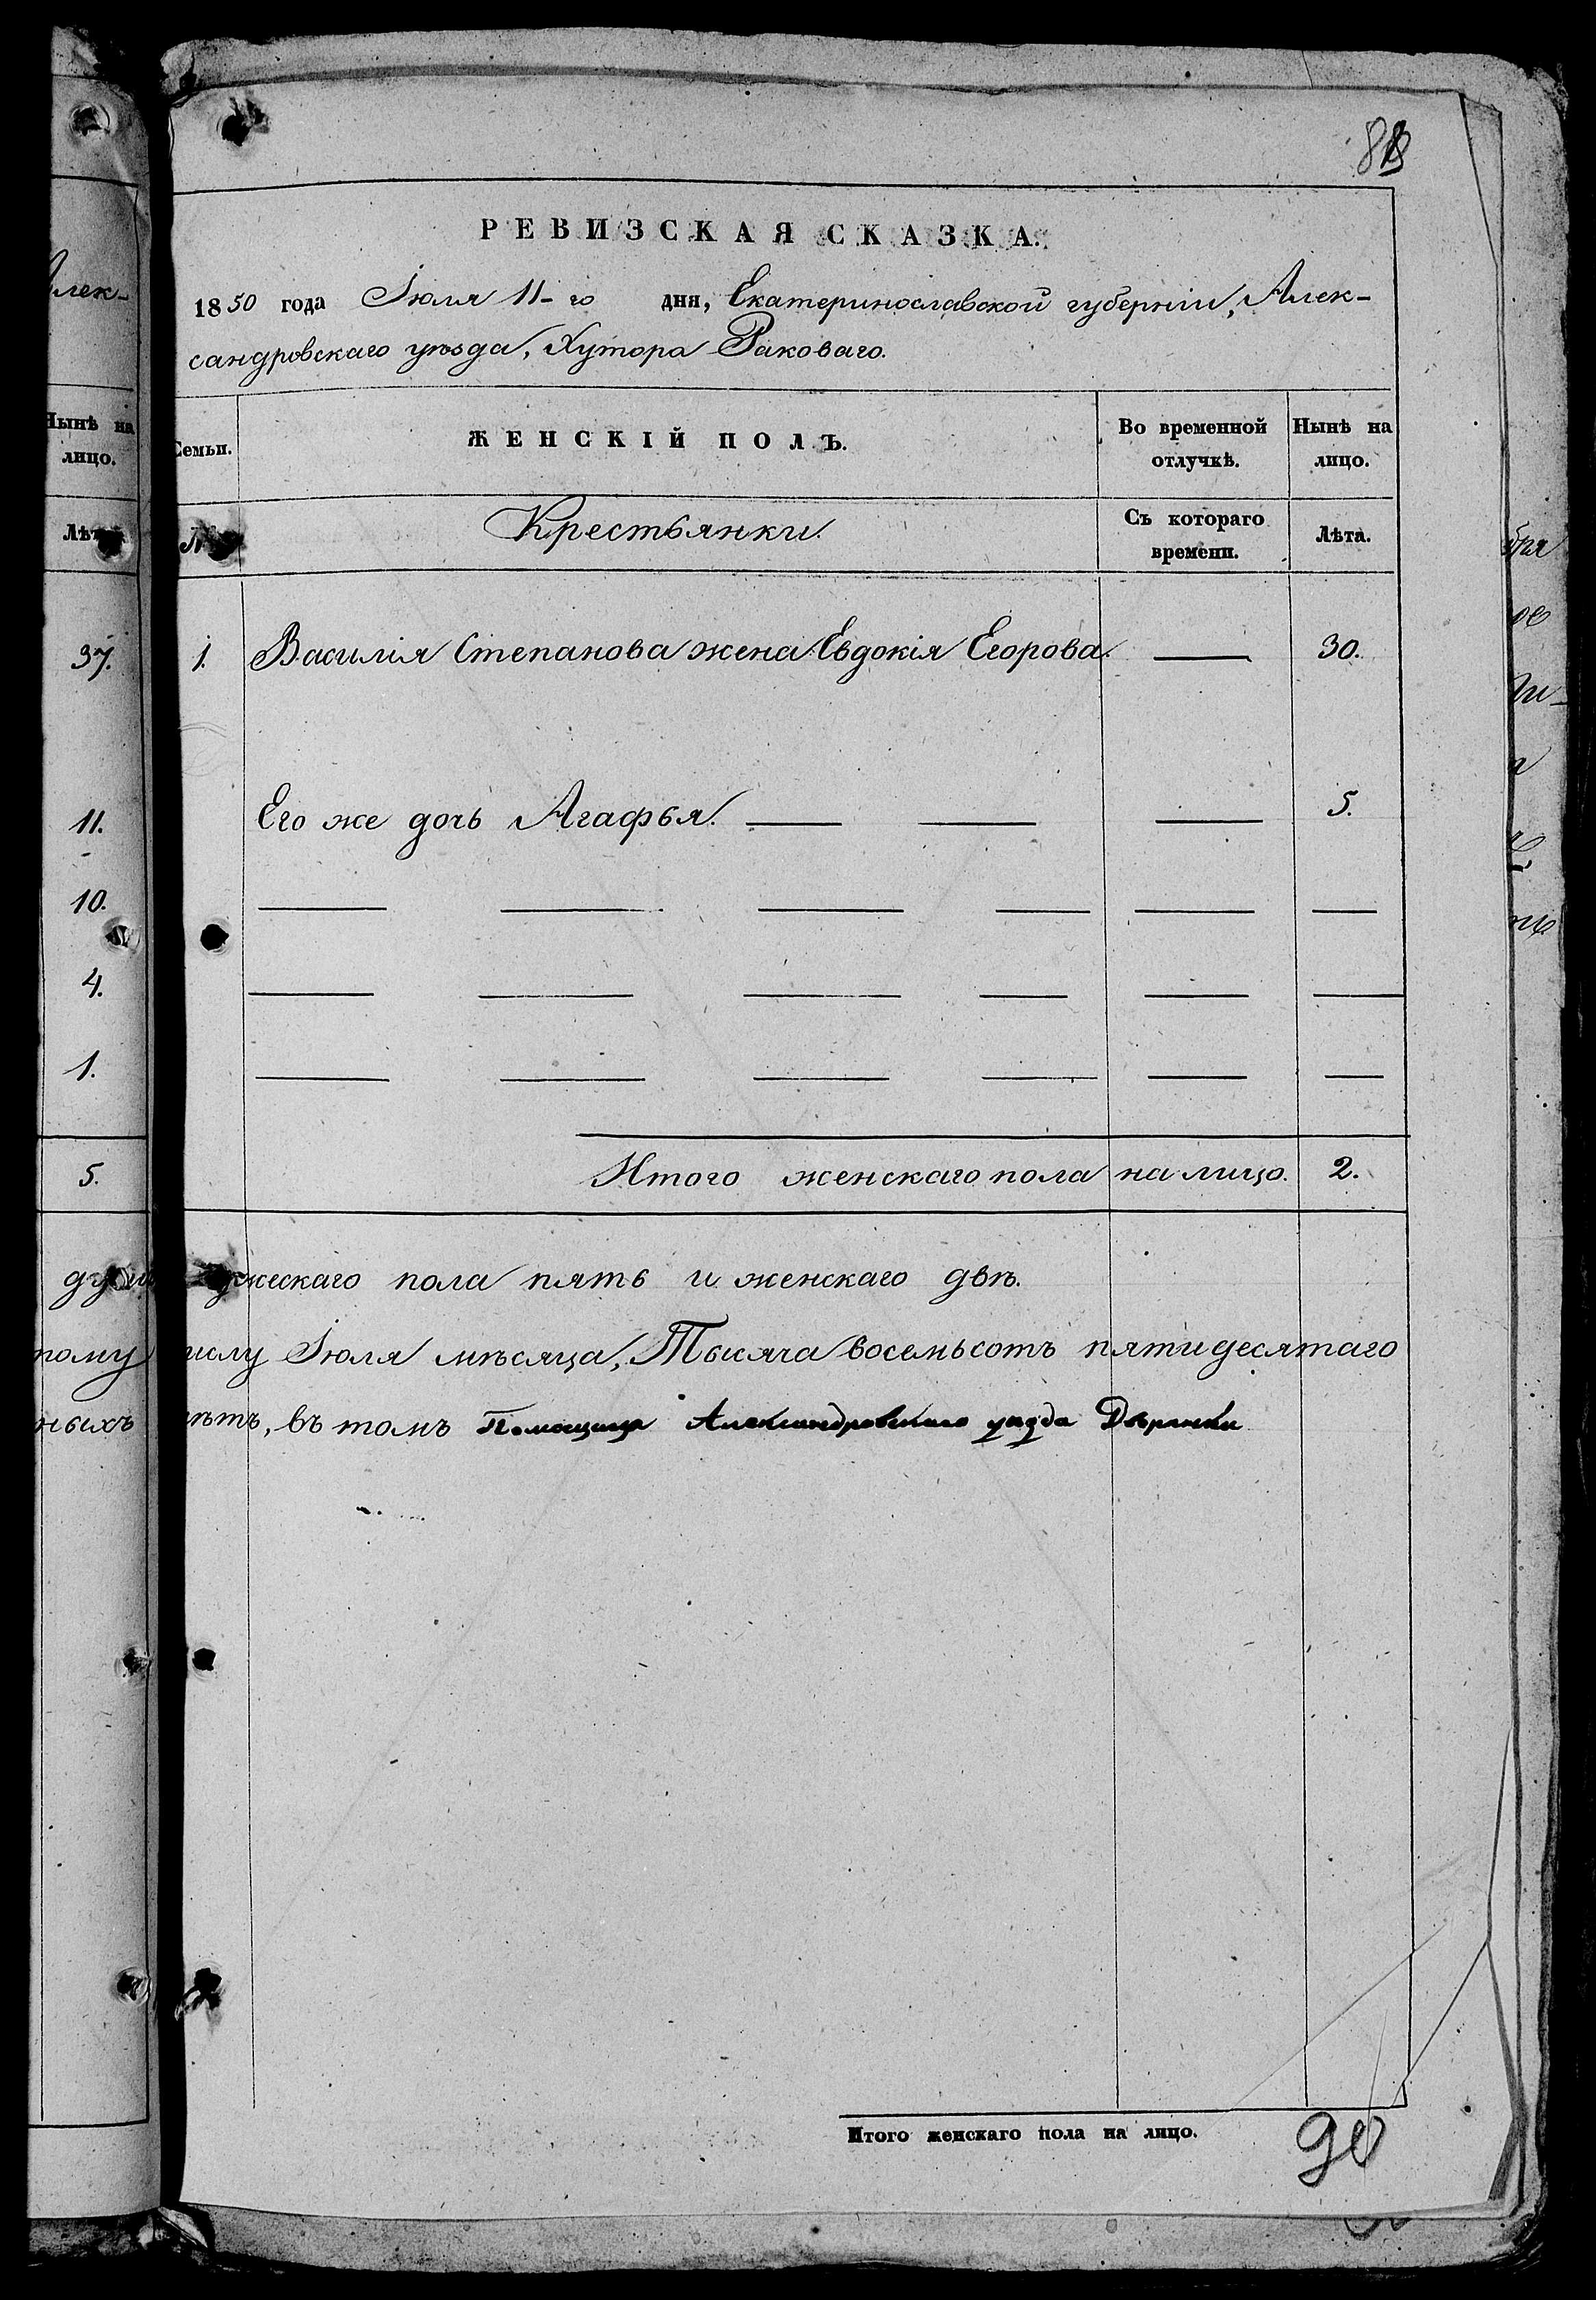 РЕВИЗСКАЯ СКАЗКА.
1850 года Іюля 11-го дня, Екатеринославской губерніи, Алек-
сандровскаго уѣзда, Хутора Раковаго.
Семьи.
ЖЕНСКІЙ ПОЛЪ.
Во временной отлучкѣ.
Нынѣ на лицо.
№
Крестьянки.
Съ котораго времени.
Лѣта.
1. Василія Степанова жена Евдокія Егорова. — 30.
Его же дочь Агафья. — — — 5.
— — — — — —
— — — — — —
— — — — — —
Итого женскаго пола на лицо. 2.
жескаго пола пять и женскаго двѣ.
числу Іюля мѣсяца, Тысяча восемьсотъ пятидесятаго
лѣтъ, въ томъ Помощица Александровскаго уѣзда Дворянки
Итого женскаго пола на лицо.
90
Алек-
Нынѣ на
лицо.
Лѣта
37.
11.
10.
4.
1.
5.